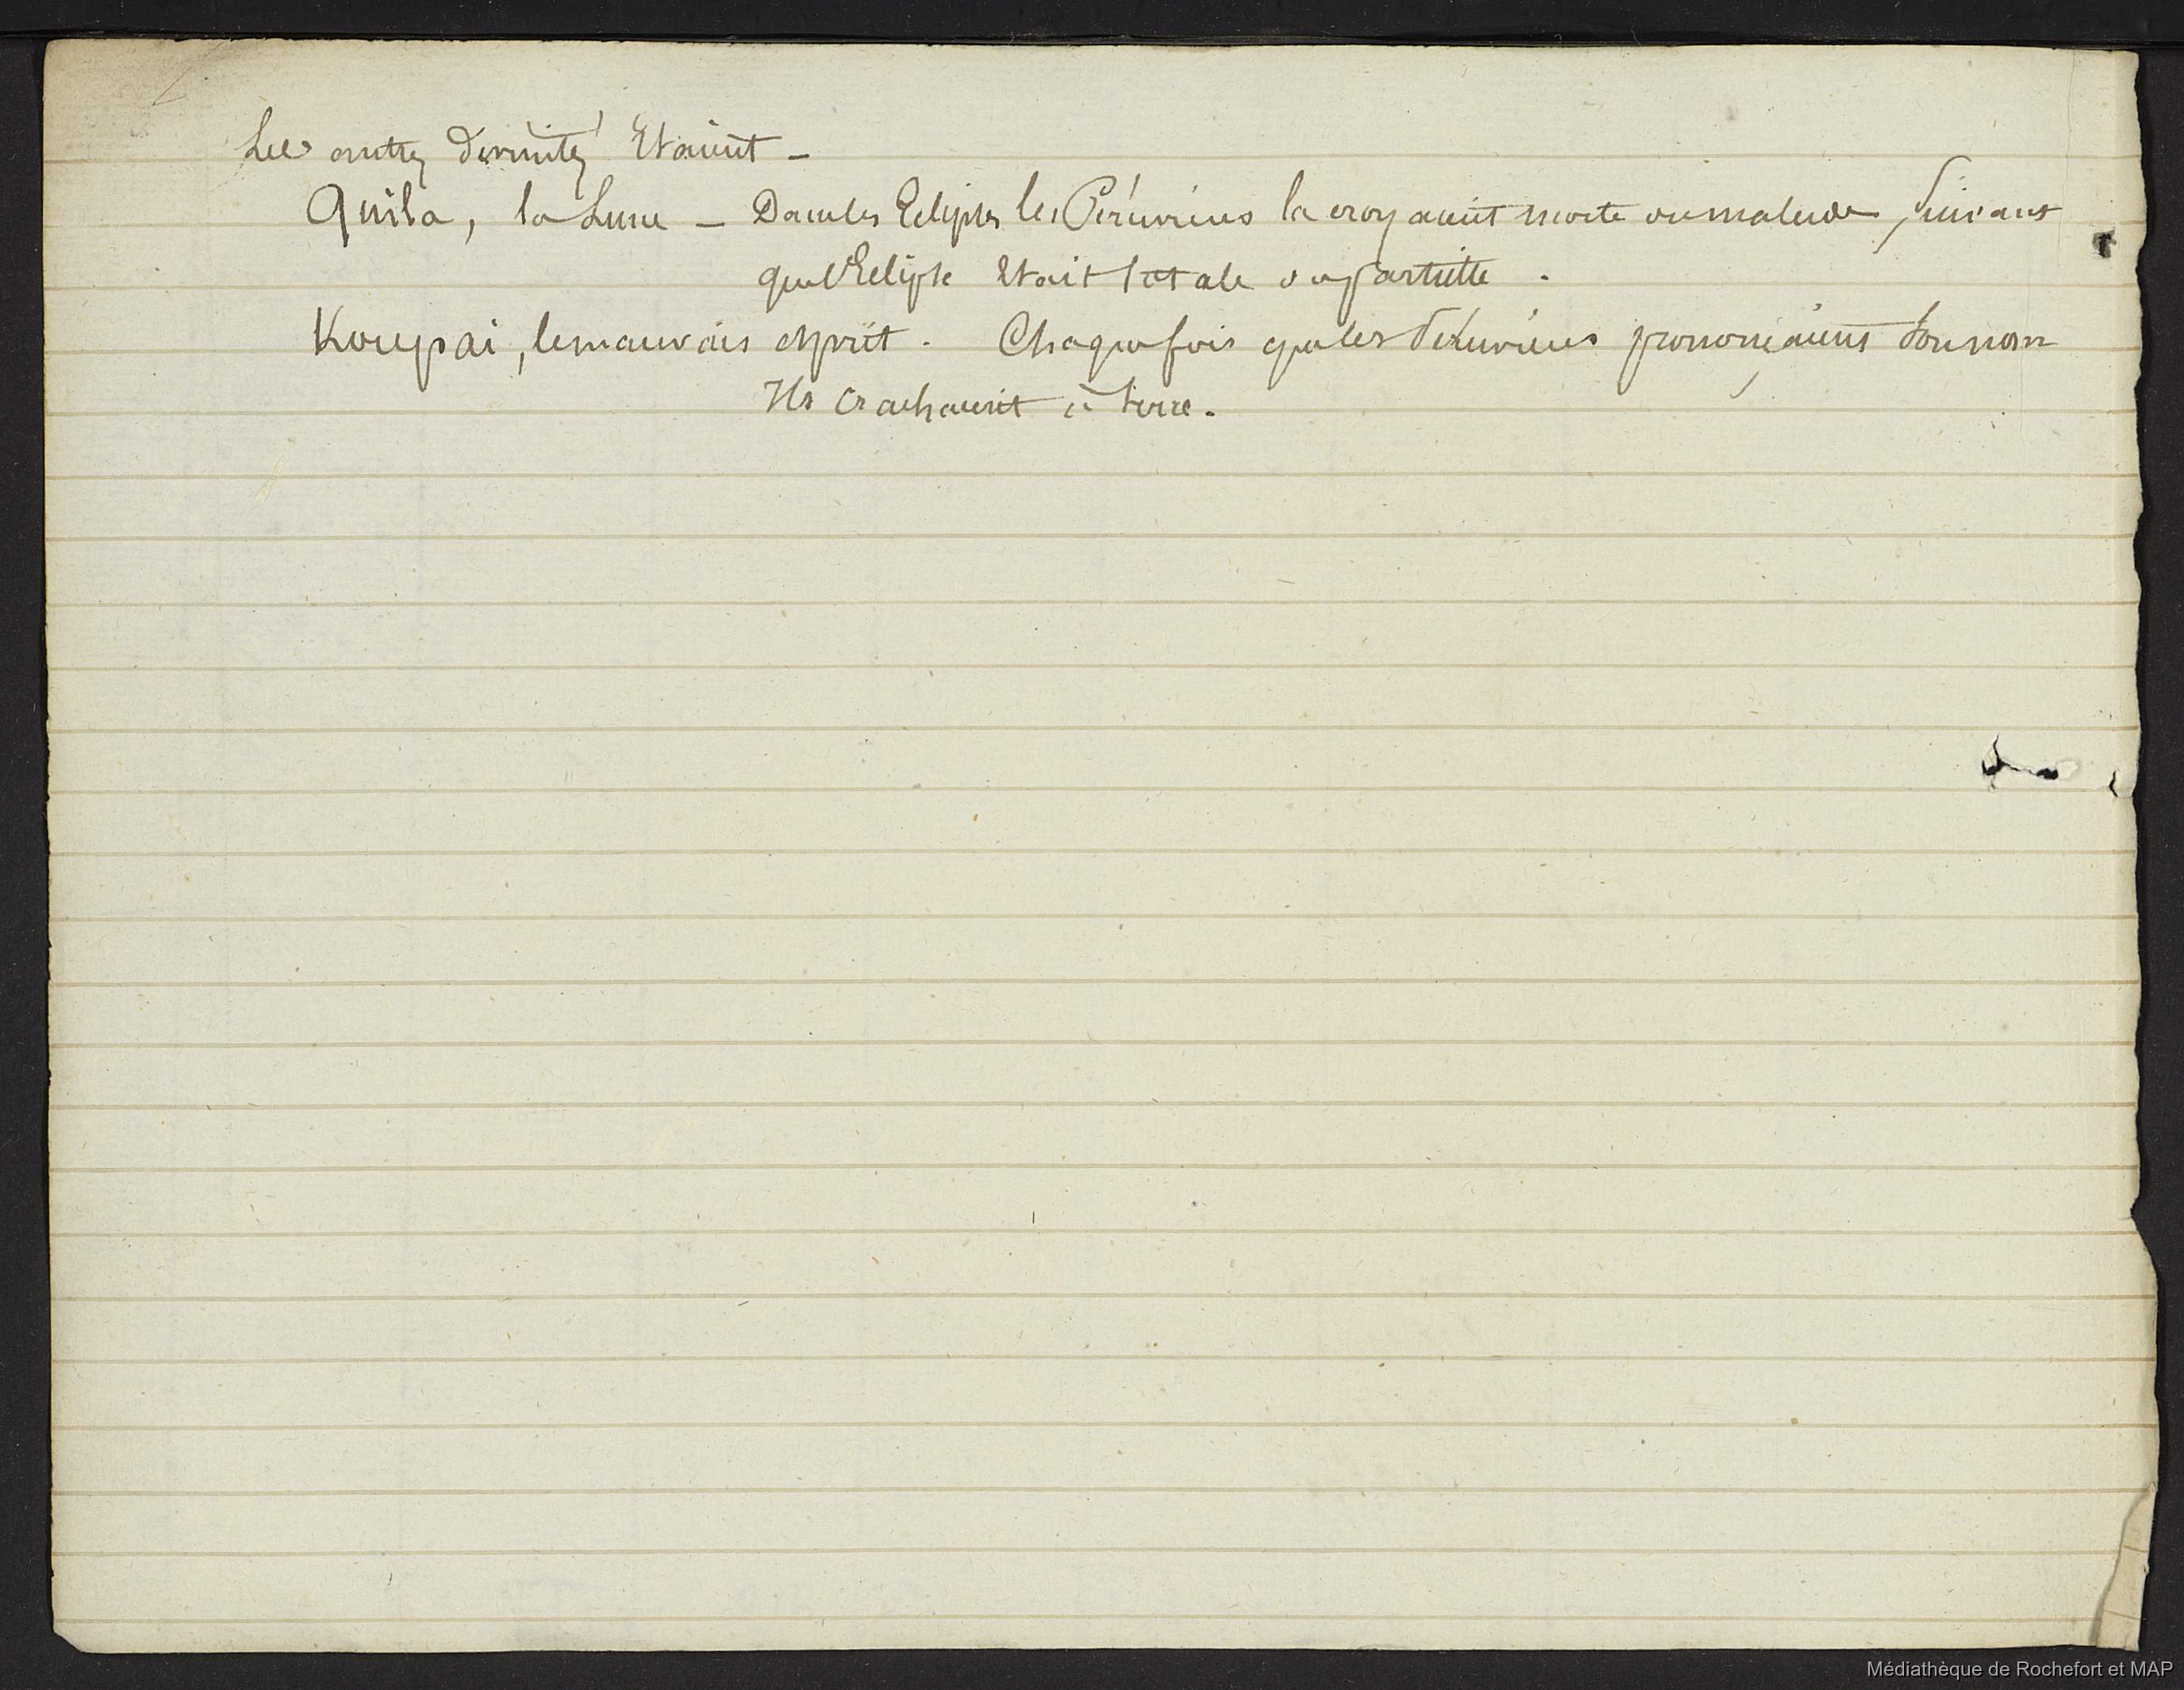 Les autres divinités étaient –
Quila, la Lune – Dans les Eclipses les Péruviens la croyaient morte ou malade, suivant
que l'Eclipse était totale ou partielle.
Koupai, le mauvais esprit. Chaque fois que les Péruviens prononçaient son nom
Ils crachaient à terre.
Médiathèque de Rochefort et MAP